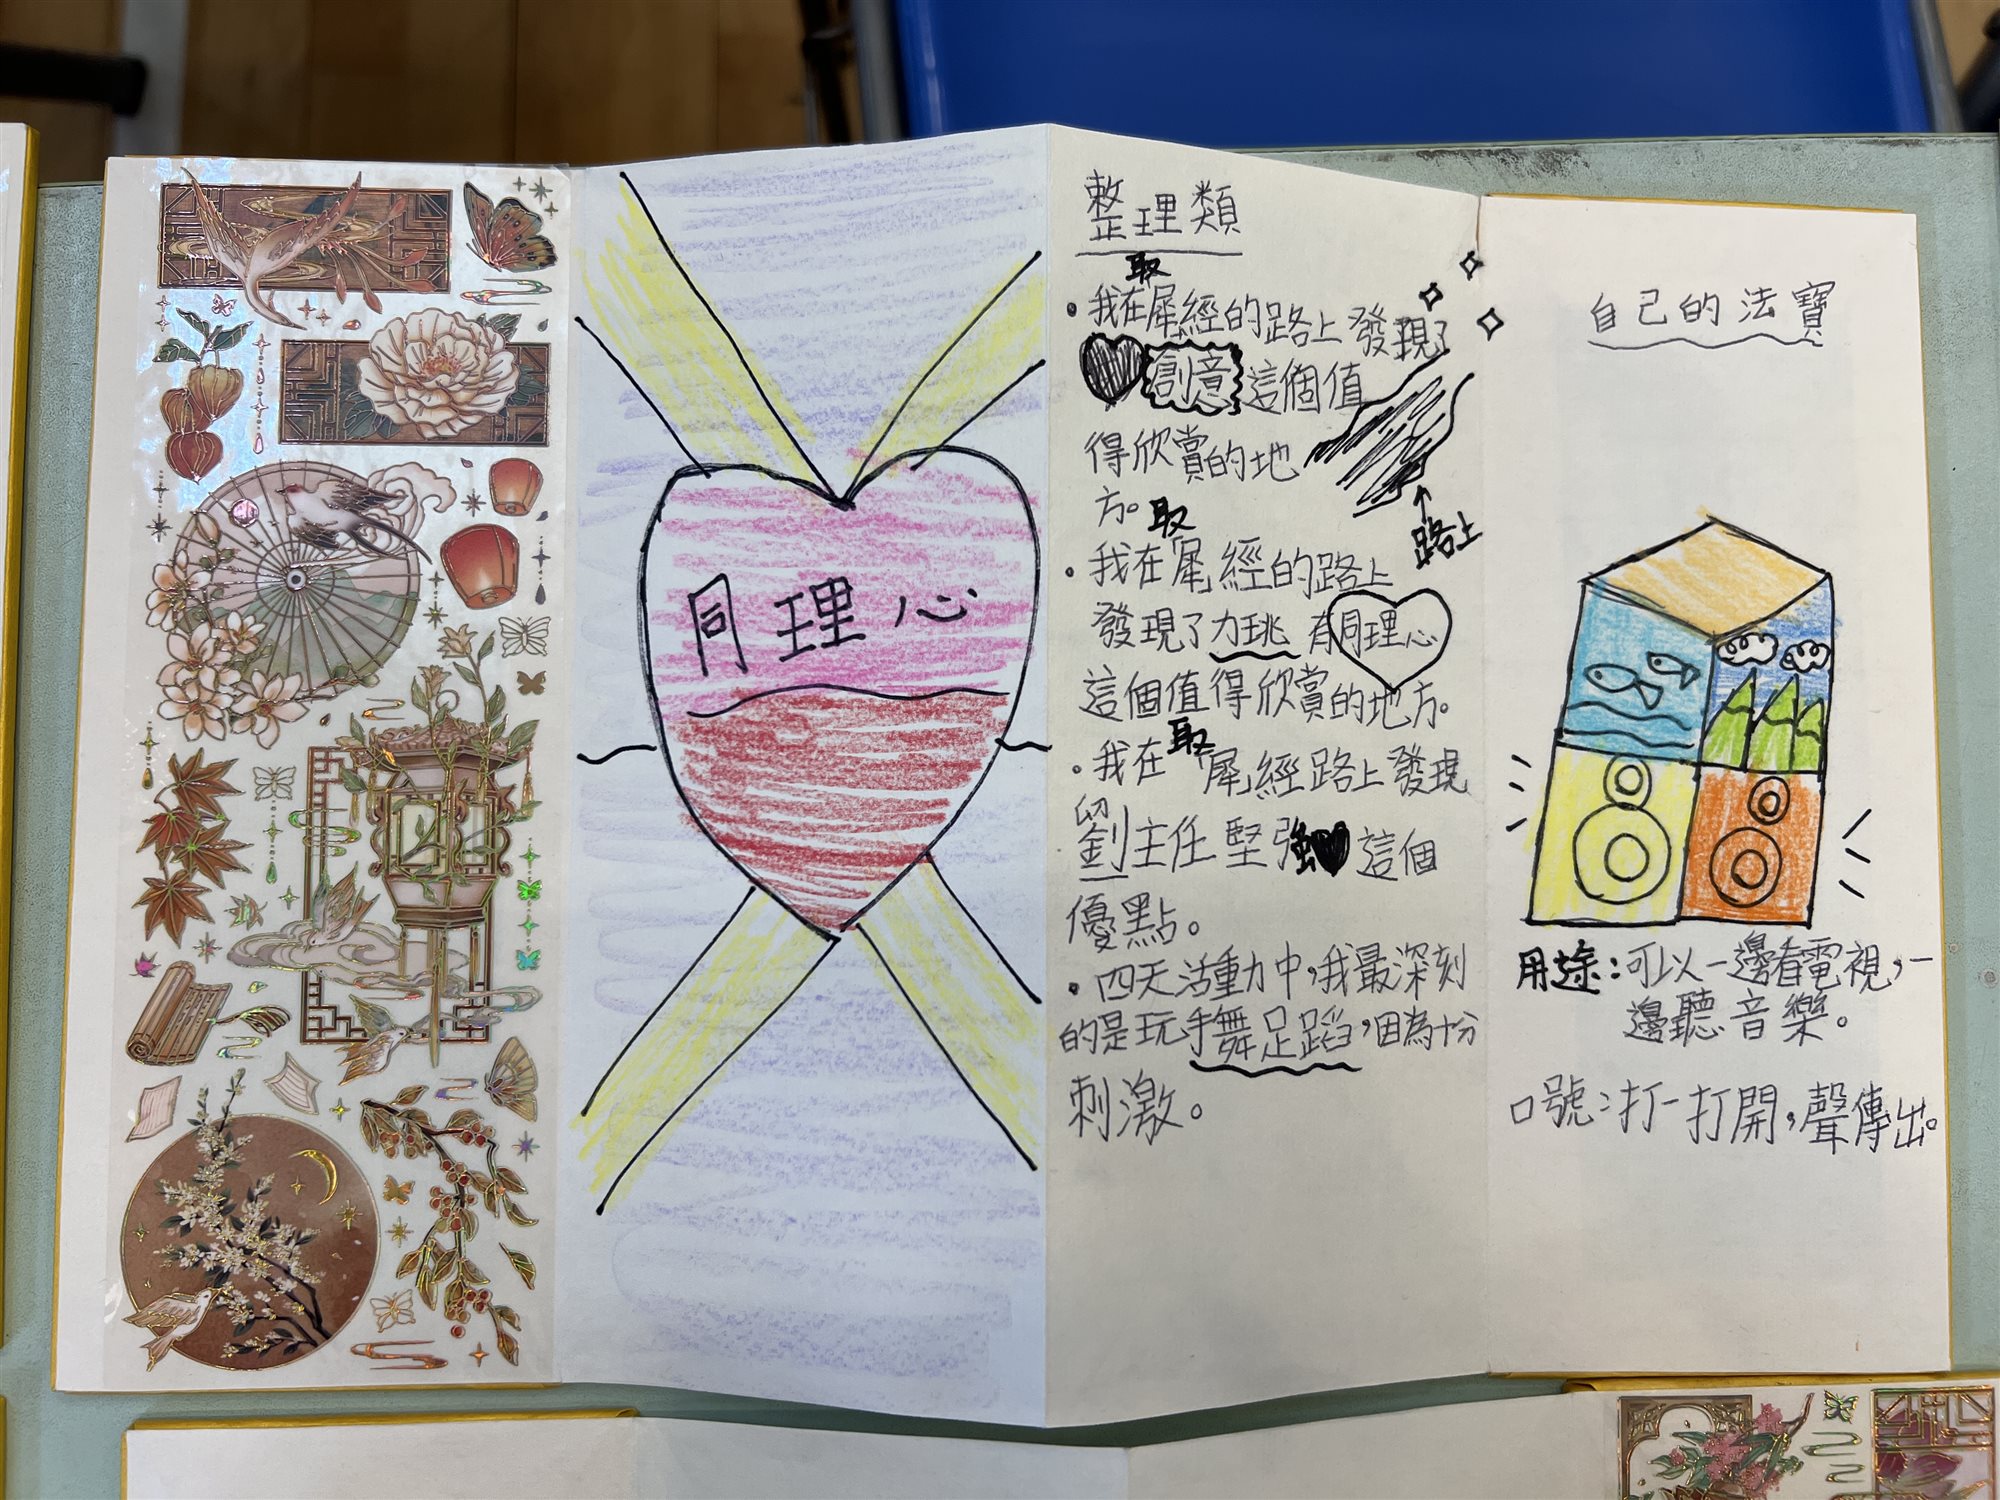 同理心
整理類
取
我在犀經的路上發現了
創意這個值
得欣賞的地
方。
路上
取
我在犀經的路上
發現了力珧有同理心
這個值得欣賞的地方。
取
我在犀經路上發現
劉主任堅強這個
優點。
四天活動中,我最深刻
的是玩手舞足蹈,因為十分
刺激。
自己的法寶
用途:可以一邊看電視,一
邊聽音樂。
口號:打一打開,聲傳出。